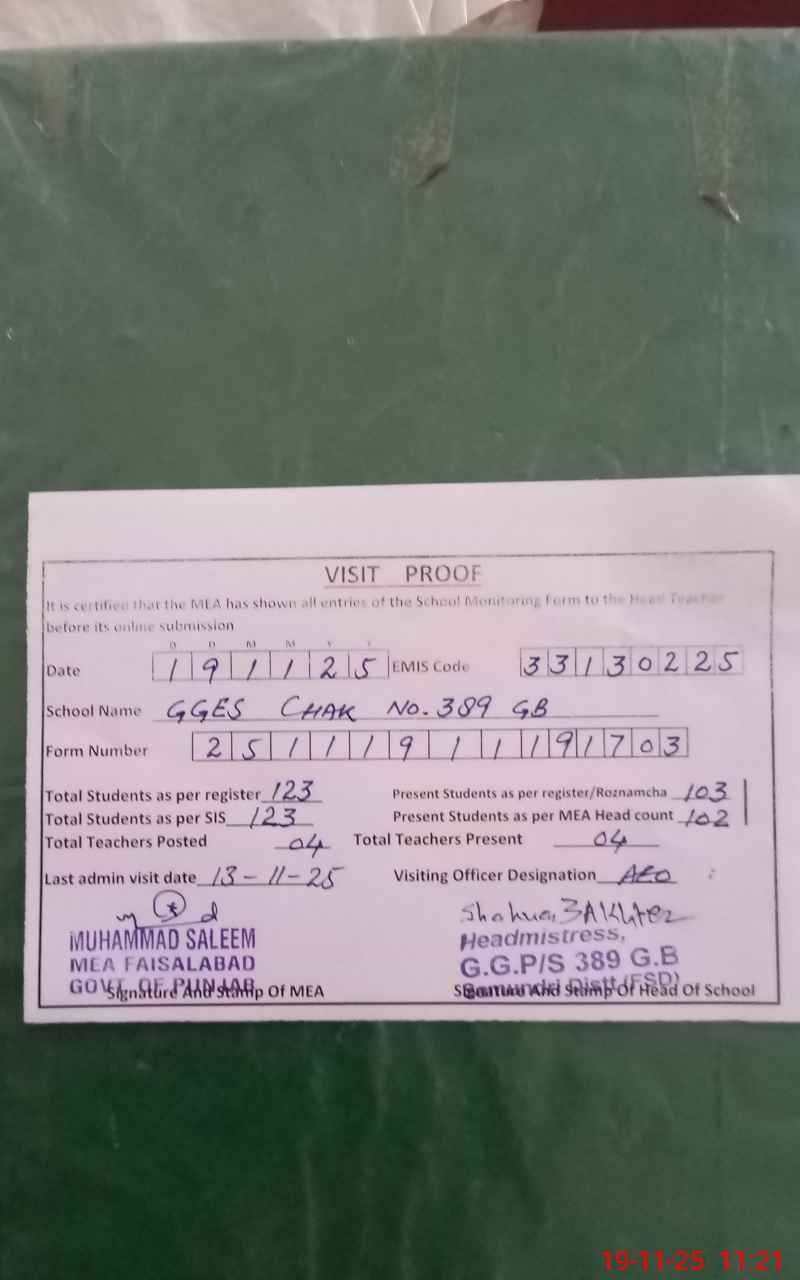 VISIT PROOF
It is certified that the MEA has shown all entries of the School Monitoring Form to the Head Teacher
before its online submission
D D M M Y Y
Date 191125 EMIS Code 33130225
School Name GGES CHAK NO. 389 GB
Form Number 25111911191703
Total Students as per register 123 Present Students as per register/Roznamcha 103
Total Students as per SIS 123 Present Students as per MEA Head count 102
Total Teachers Posted 04 Total Teachers Present 04
Last admin visit date 13-11-25 Visiting Officer Designation AEO
MUHAMMAD SALEEM
MEA FAISALABAD
GOVT. OF PUNJAB
Signature And Stamp Of MEA
Headmistress,
G.G.P/S 389 G.B
Samundri Distt (FSD)
Signature And Stamp Of Head Of School
19-11-25 11:21